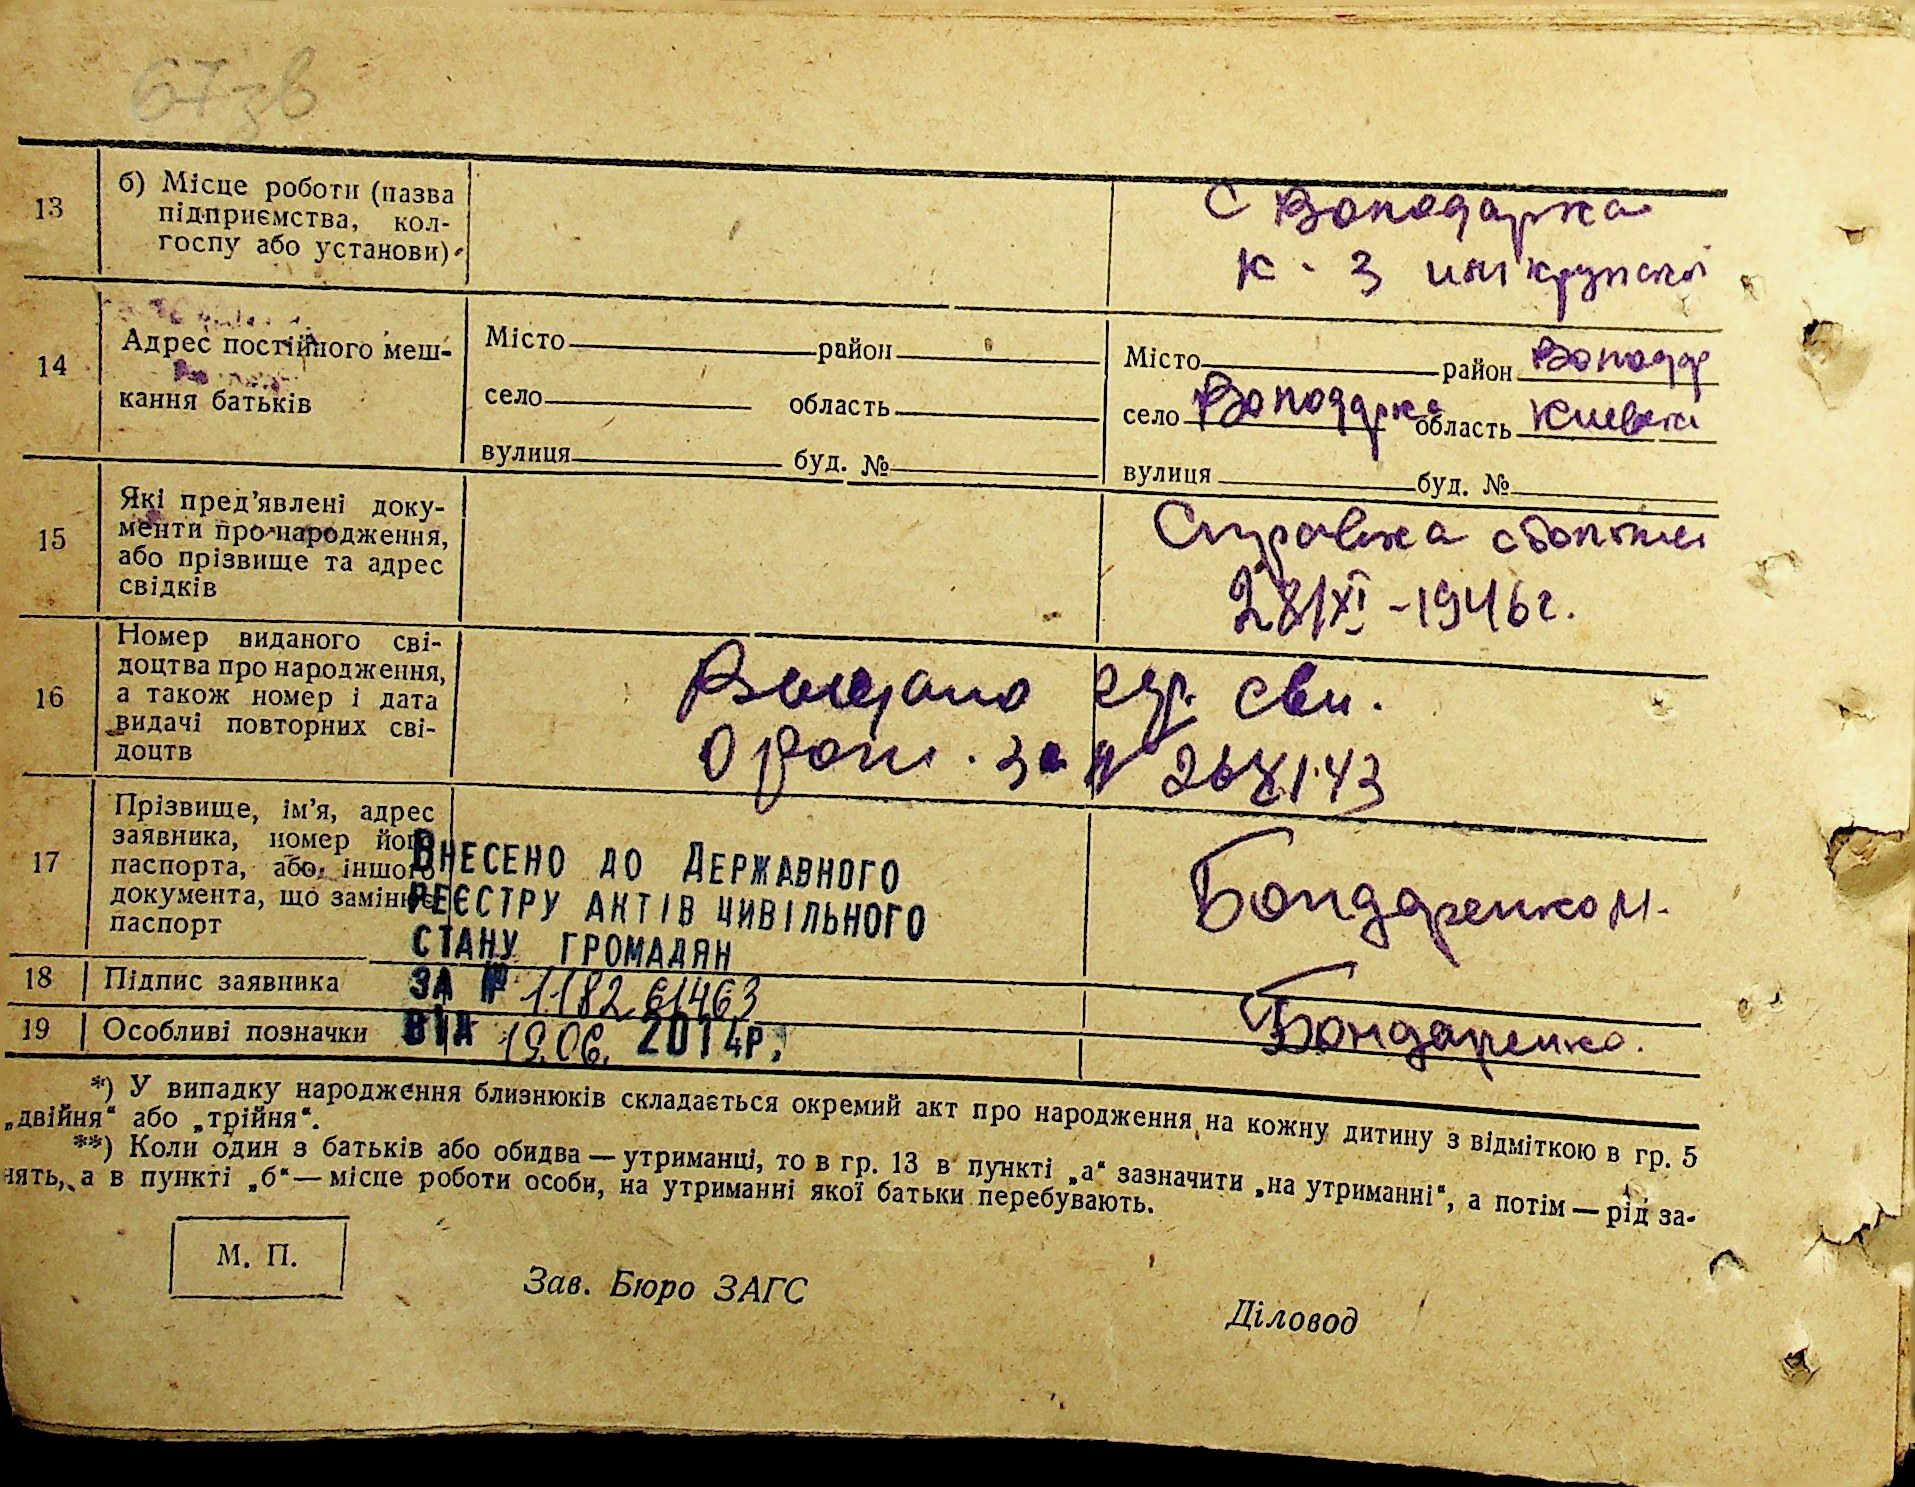 67зв
13 б) Місце роботи (назва
підприємства, кол-
госпу або установи)
с Володарка
к-з им крупской
14 Адрес постійного меш-
кання батьків
Місто район
село область
вулиця буд. №
Місто район Володар
село Володарка область Киевска
вулиця буд. №
15 Які пред’явлені доку-
менти про народження,
або прізвище та адрес
свідків
Справка
28/XI-1946г.
16 Номер виданого сві-
доцтва про народження,
а також номер і дата
видачі повторних сві-
доцтв
Выдано сви.
о рож. за № 268143
17 Прізвище, ім’я, адрес
заявника, номер його
паспорта, або іншого
документа, що замінює
паспорт
Бондаренко М.
Внесено до Державного
реєстру актів цивільного
стану громадян
за № 118261463
від 19.06. 2014р.
18 Підпис заявника
Бондаренко.
19 Особливі позначки
*) У випадку народження близнюків складається окремий акт про народження на кожну дитину з відміткою в гр. 5
„двійня“ або „трійня“.
**) Коли один з батьків або обидва — утриманці, то в гр. 13 в пункті „а“ зазначити „на утриманні“, а потім — рід за-
нять, а в пункті „б“ — місце роботи особи, на утриманні якої батьки перебувають.
М. П.
Зав. Бюро ЗАГС
Діловод